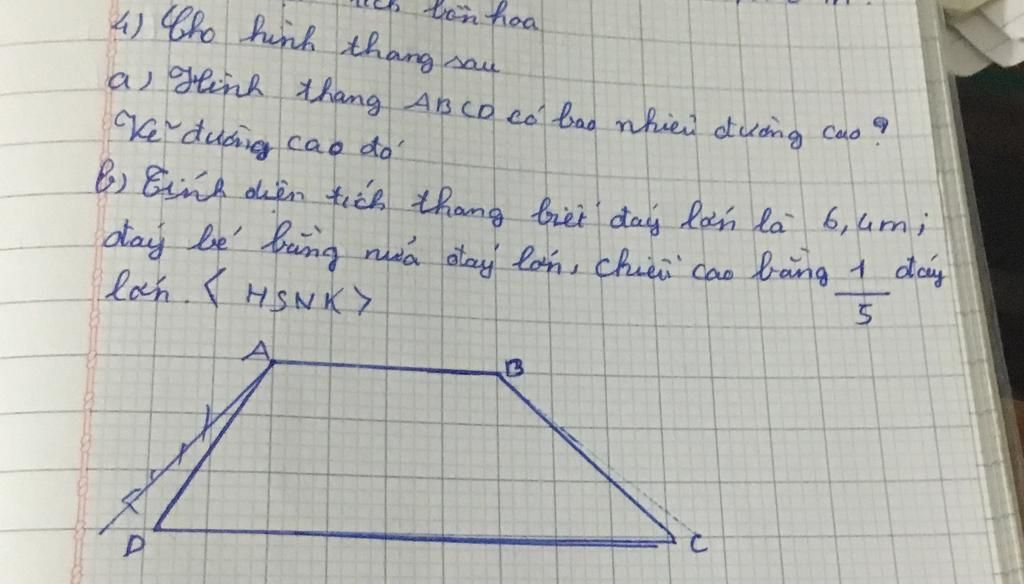 tích bồn hoa
4) Cho hình thang sau
a) Hình thang ABCD có bao nhiêu đường cao?
Kẻ đường cao đó
b) Tính diện tích thang biết đáy lớn là 6,4m;
đáy bé bằng nửa đáy lớn, chiều cao bằng 1/5 đáy
lớn. < HSNK >
A B
D C